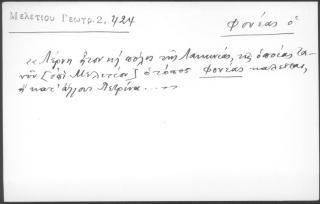 Μελετίου Γεωγρ. 2, 424
Φονέας ὁ
« Λέρνη ἦτον καὶ πόλις τῆς Λακωνίας, τῆς ὁποίας τα-
νῦν [ἐπὶ Μελετίου] ὁ τόπος Φονέας καλεῖται,
ἢ κατ' ἄλλους Πετρίνα .... »